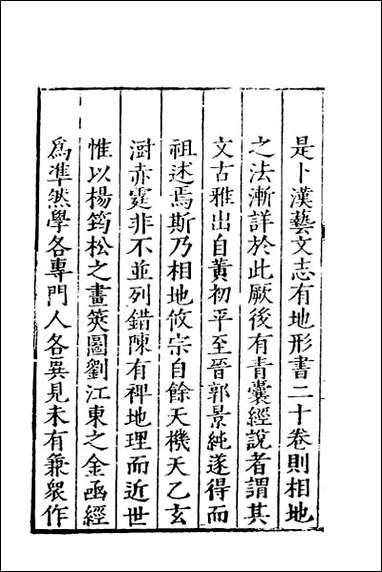 是卜漢藝文志有地形書二十卷則相地
之法漸詳於此厥後有青囊經說者謂其
文古雅出自黃初平至晉郭景純遂得而
祖述焉斯乃相地攸宗自餘天機天乙玄
㴙赤霆非不並列錯陳有裨地理而近世
惟以楊筠松之畫筴圖劉江東之金函經
為準然學各專門人各異見未有兼衆作